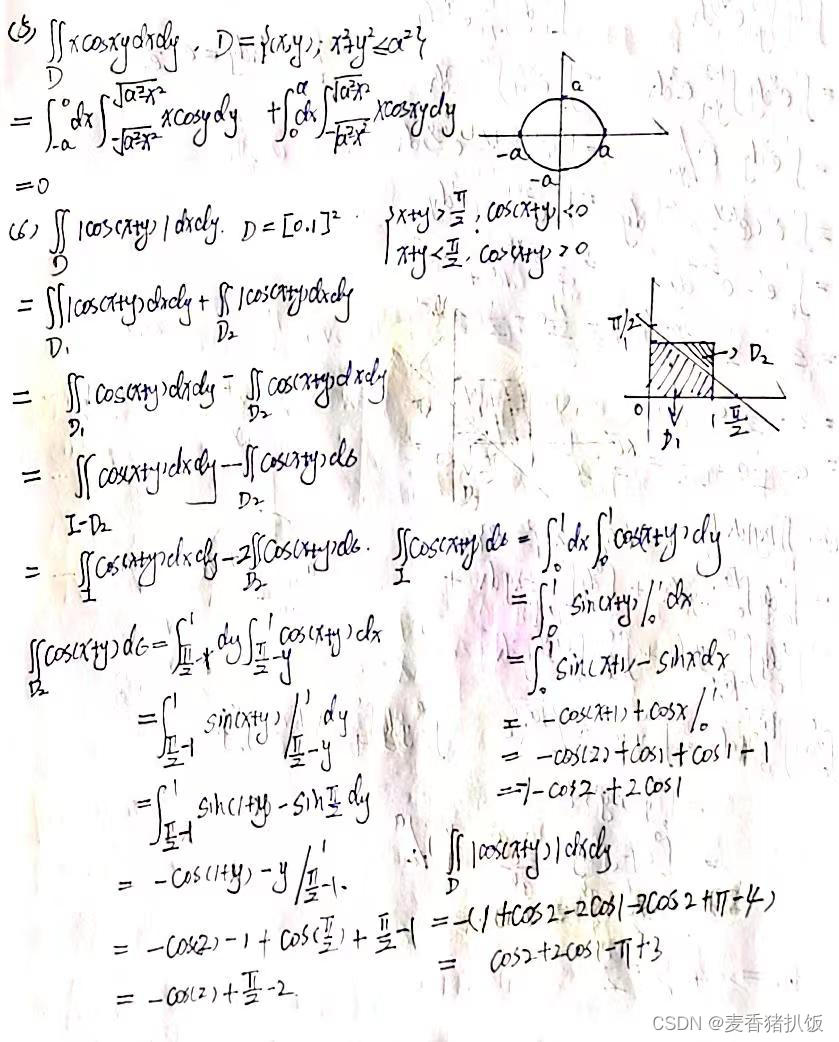 (5) ∬_D xcosxy dxdy , D={(x,y); x²+y²≤a²}
= ∫_{-a}^{0} dx ∫_{-√(a²-x²)}^{√(a²-x²)} xcosy dy + ∫_0^a dx ∫_{-√(a²-x²)}^{√(a²-x²)} xcosxy dy
=0
a
-a a
-a
(6) ∬_D |cos(x+y)| dxdy. D=[0.1]²
{x+y>π/2, cos(x+y)<0
x+y<π/2, cos(x+y)>0
= ∬_{D1} |cos(x+y) dxdy + ∬_{D2} |cos(x+y) dxdy
= ∬_{D1} cos(x+y) dxdy - ∬_{D2} cos(x+y) dxdy
= ∬_{I-D2} cos(x+y) dxdy - ∬_{D2} cos(x+y) dσ
= ∬_I cos(x+y) dxdy - 2∬_{D2} cos(x+y) dσ.
π/2
1
D2
0 1 π/2
D1
∬_I cos(x+y) dσ = ∫_0^1 dx ∫_0^1 cos(x+y) dy
= ∫_0^1 sin(x+y) /_0^1 dx
= ∫_0^1 sin(x+1) - sinx dx
= -cos(x+1) + cosx /_0^1
= -cos(2) + cos1 + cos1 - 1
= -1 - cos2 + 2cos1
∬_{D2} cos(x+y) dσ = ∫_{π/2-1}^1 dy ∫_{π/2-y}^1 cos(x+y) dx
= ∫_{π/2-1}^1 sin(x+y) /_{π/2-y}^1 dy
= ∫_{π/2-1}^1 sin(1+y) - sin π/2 dy
= -cos(1+y) - y /_{π/2-1}^1.
= -cos(2) - 1 + cos(π/2) + π/2 - 1
= -cos(2) + π/2 - 2
∴ ∬_D |cos(x+y)| dxdy
= -(1+cos2-2cos1-2cos2+π-4)
= cos2+2cos1-π+3
CSDN @麦香猪扒饭